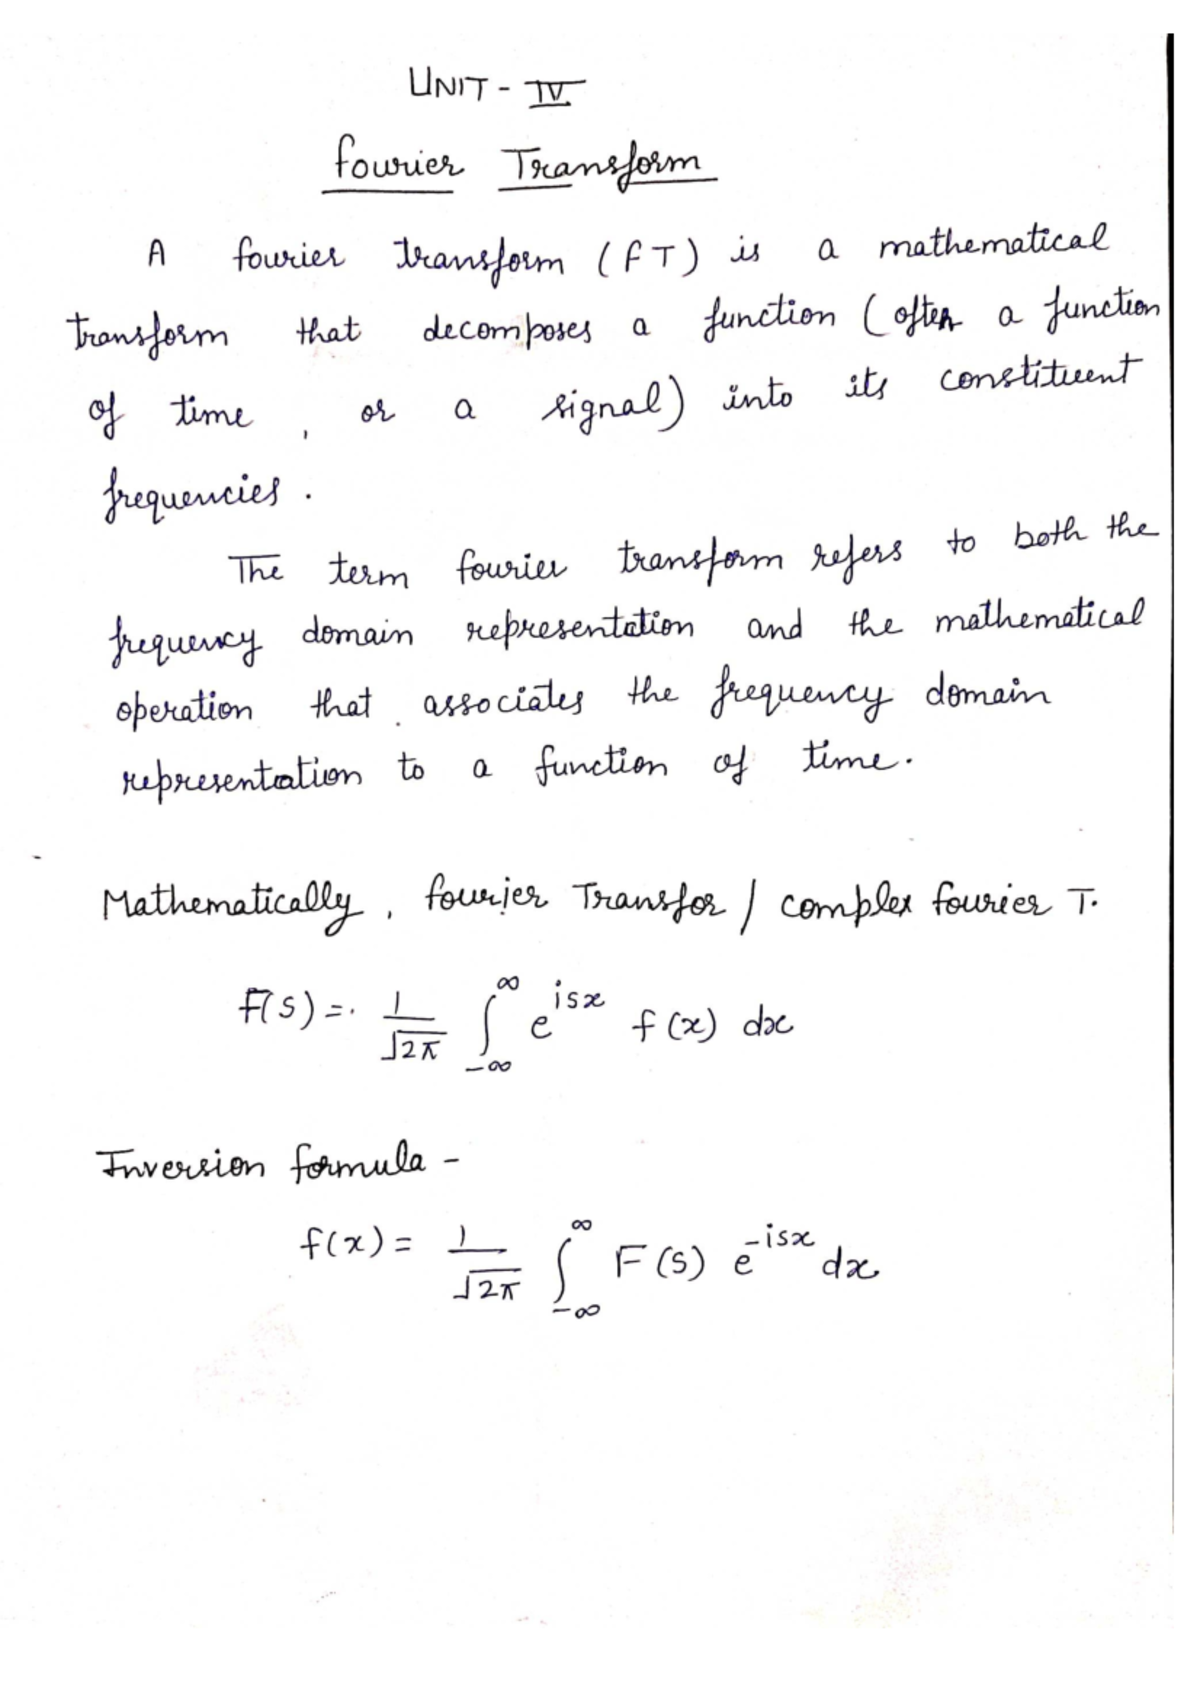 UNIT - IV
Fourier Transform
A fourier transform (FT) is a mathematical
transform that decomposes a function (often a function
of time, or a signal) into its constituent
frequencies.
The term fourier transform refers to both the
frequency domain representation and the mathematical
operation that associates the frequency domain
representation to a function of time.
Mathematically, fourier Transfor / complex fourier T.
F(s) = 1/√2π ∫_{-∞}^{∞} e^{isx} f(x) dx
Inversion formula -
f(x) = 1/√2π ∫_{-∞}^{∞} F(s) e^{-isx} dx